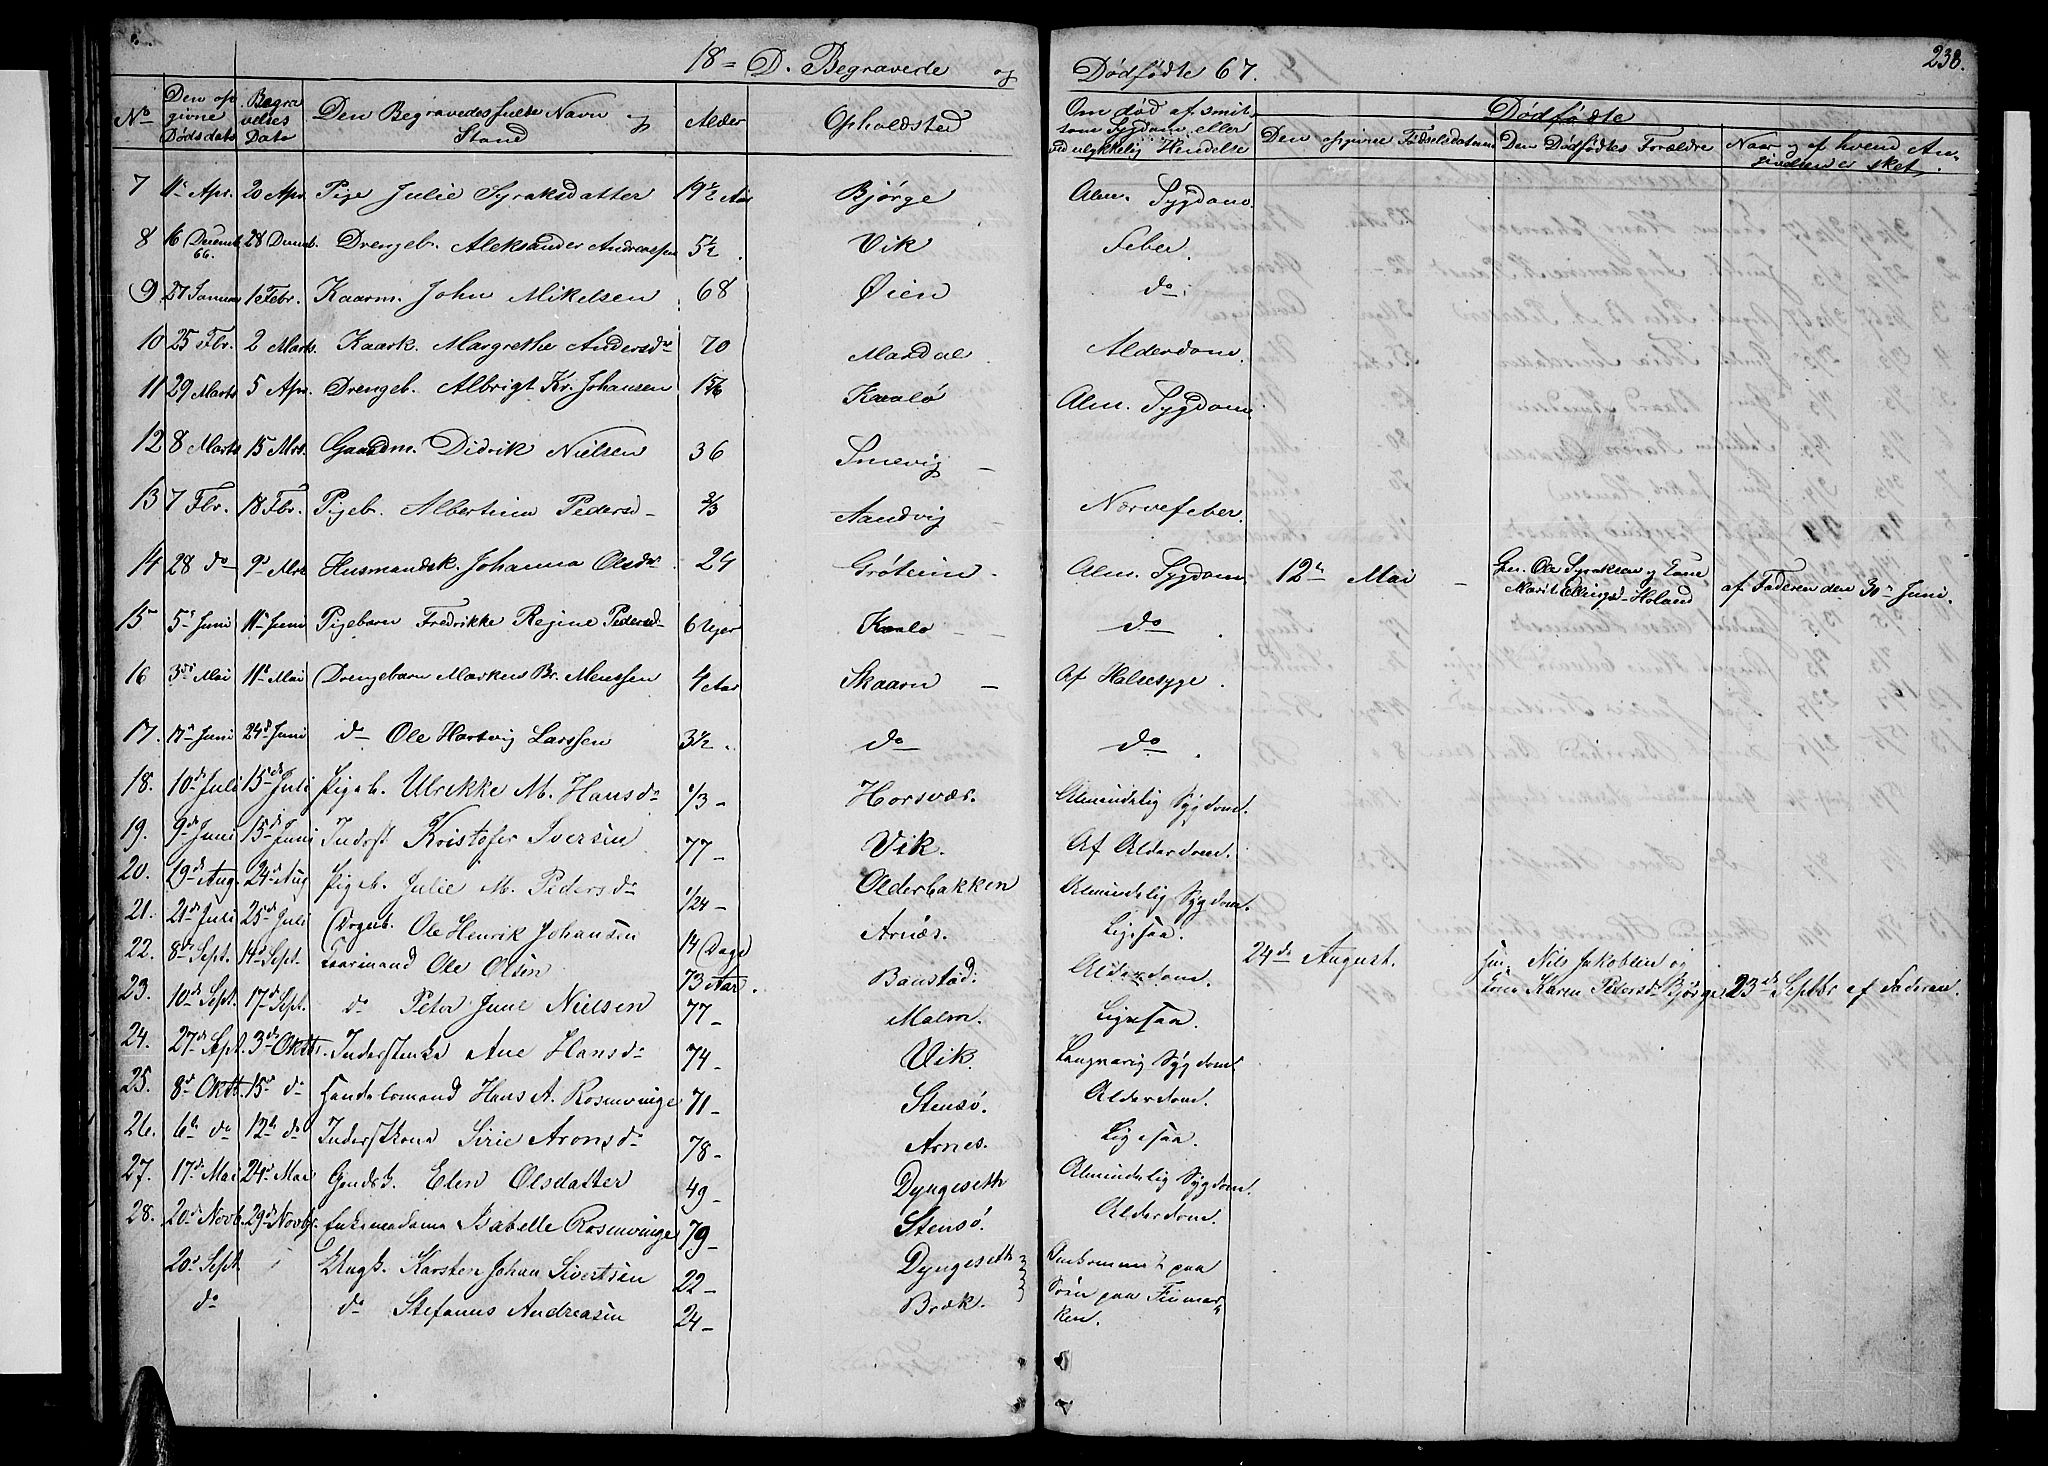 238.
18 = D. Begravede og Dødfødte 67.
No Den opgivne Dødsdato Begravelses Dato Den Begravedes fulde Navn og Stand Alder Opholdsted Om død af smitsom Sygdom eller ved ulykkelig Hendelse Dødfødte
Den opgivne Fødselsdatum Den Dødfødtes Forældre Naar og af hvem Angivelsen er sket
7 11t Apr. 20 Apr. Pige Julie Syraksdatter 19½ Aar Bjørge Alm. Sygdom.
8 16 Decemb. 66. 28 Decemb. Drengeb. Aleksander Andreassen 5½ Vik Feber.
9 27 Januar 1e Febr. Kaarm. John Mikelsen 68 Øien do
10 25 Fbr. 2 Marts. Kaark. Margrethe Andersdr 70 Mardal Alderdom.
11 29 Marts 5 Apr. Drengeb. Albrigt Kr. Johansen 1 5/6 Kaalø Alm. Sygdom.
12 8 Marts 15 Mrs. Gaardm. Didrik Nielsen 36 Smevig
13 7 Fbr. 18 Fbr. Pigeb. Albertina Pedersd 2/3 Sandvig Nærvefeber.
14 28 do 9e Mrs Husmandsk. Johanna Olsdr 24 Grøteim Alm. Sygdom 12te Mai Gm. Ole Syraksen og Kone Marit Ellingsd Holand af Faderen den 30te Juni.
15 5te Juni 11te Juni Pigebarn Fredrikke Regine Pedersd 6 Uger Kaalø do
16 3de Mai 11te Mai Drengebarn Markus Br. Monssen 4 Aar Skaarn Af Halsesyge.
17. 17de Juni 24de Juni do Ole Hartvig Larssen 3½ do do
18. 10de Juli 15de Juli Pigeb. Ulrikke M. Hansdr 1/3 Horsvær. Almindelig Sygdom.
19. 9de Juni 15de Juni Inderst Kristofer Iversen 77 Vik. Af Alderdom.
20. 19de Aug. 24de Aug Pigeb. Julie M. Pedersdr 1/24 Olderbakken Almindelig Sygdom.
21. 21de Juli 25de Juli Drgeb. Ole Henrik Johansen 14 Dage Arnæs. Ligesaa.
22. 8de Sept. 14de Sept. Kaarmand Ole Olsen 73 Aar. Banstad. Alderdom. 24de August. Gm. Nils Jakobsen og
23. 10de Sept. 17de Sept. do Peter June Nielsen 77 Malm. Ligesaa. Kone Karen Pedersdr Bjørge 23de Septbr af Faderen.
24. 27de Sept. 3de Oktbr. Inderstenke Ane Hansdr 74 Vik. Langvarig Sygdom
25. 8de Oktb 15de do Handelsmand Hans A. Rosenvinge 71 Stensø. Alderdom.
26. 6te do 12te do Inderstkone Sirie Aronsdr 78 Arnes. Ligesaa.
27. 17de Mai 24de Mai Gmdsk. Elen Olsdatter 49 Dyngeseth Almindelig Sygdom.
28. 20de Novb. 29de Novbr. Enkemadame Isabelle Rosenvinge 79 Stensø. Alderdom.
20de Sept Ungk. Karsten Johan Sivertsen 22 Dyngeseth Omkommet paa
do do Stefanus Andreasen 24 Bræk. Søen paa Finmarken.